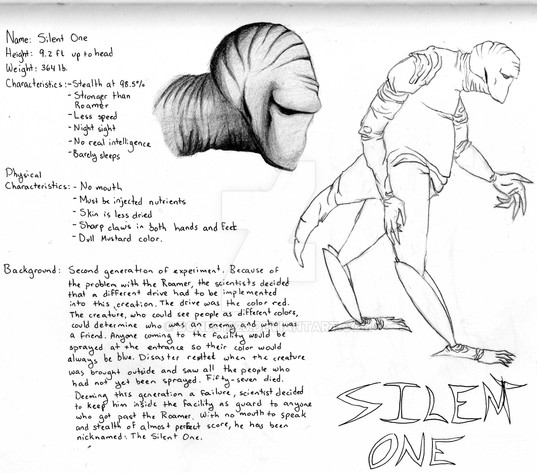 Name: Silent One
Height: 9.2 ft up to head
Weight: 364 lb.
Characteristics: - Stealth at 98.5%
- Stronger than
Roamer
- Less speed
- Night sight
- No real intelligence
- Barely sleeps
Physical
Characteristics: - No mouth
- Must be injected nutrients
- Skin is less dried
- Sharp claws in both hands and feet
- Dull Mustard color.
Background: Second generation of experiment. Because of
the problem with the Roamer, the scientists decided
that a different drive had to be implemented
into this creation. The drive was the color red.
The creature, who could see people as different colors,
could determine who was an enemy and who was
a friend. Anyone coming to the facility would be
sprayed at the entrance so their color would
always be blue. Disaster when the creature
was brought outside and saw all the people who
had not yet been sprayed. Fifty-seven died.
Deeming this generation a failure, scientist decided
to keep him inside the facility as guard to anyone
who got past the Roamer. With no mouth to speak
and stealth of almost perfect score, he has been
nicknamed: The Silent One.
SILENT
ONE